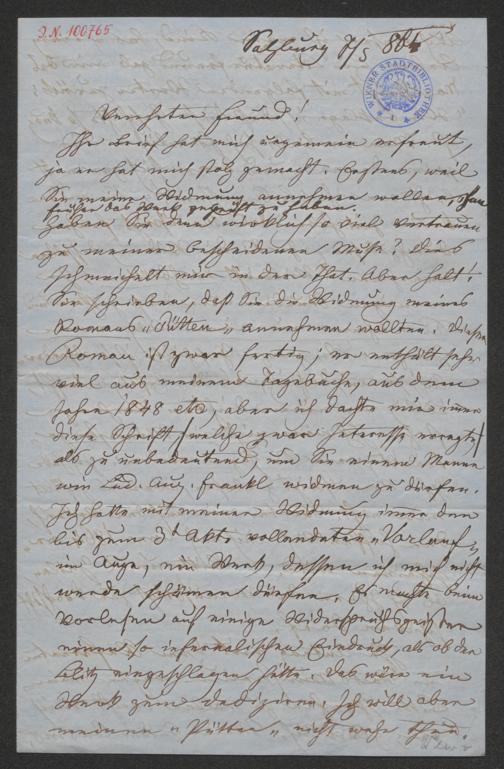 I.N. 100765
Salzburg 7/5 864
WIENER STADTBIBLIOTHEK
Verehrter Freund!
Ihr Brief hat mich ungemein erfreut,
ja er hat mich stolz gemacht. Erstens, weil
Sie meine Widmung annehmen wollen, ohne
früher das Werk geprüft zu haben.
Haben Sie denn wirklich so viel Vertrauen
zu meiner bescheidenen Muse? Dies
schmeichelt mir in der That. Aber halt!
Sie schrieben, daß Sie die Widmung meines
Romans „Pütten" annehmen wollten. Dieser
Roman ist zwar fertig; er enthält sehr
viel aus meinem Tagebuche, aus dem
Jahre 1848 etc, aber ich dachte mir immer
diese Schrift /welche zwar Interesse erregte/
als zu unbedeutend, um Sie einem Manne
wie Lud. Aug. Frankl widmen zu dürfen.
Ich hatte mit meiner Widmung immer den
bis zum 3t Akte vollendeten
im Auge, ein Werk, dessen ich mich nicht
werde schämen dürfen. Es machte beim
Vorlesen auf einige Widerspruchsgeister
einen so infernalischen Eindruck, als ob der
Blitz eingeschlagen hätte. Das wäre ein
Werk zum dediziren. Ich will aber
meinen „Pütten" nicht wehe thun.